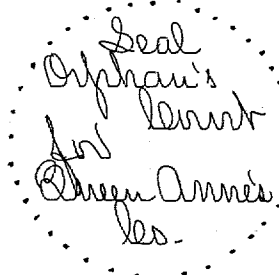 Seal
Orphan's
Court
for
Queen Anne's
Co.